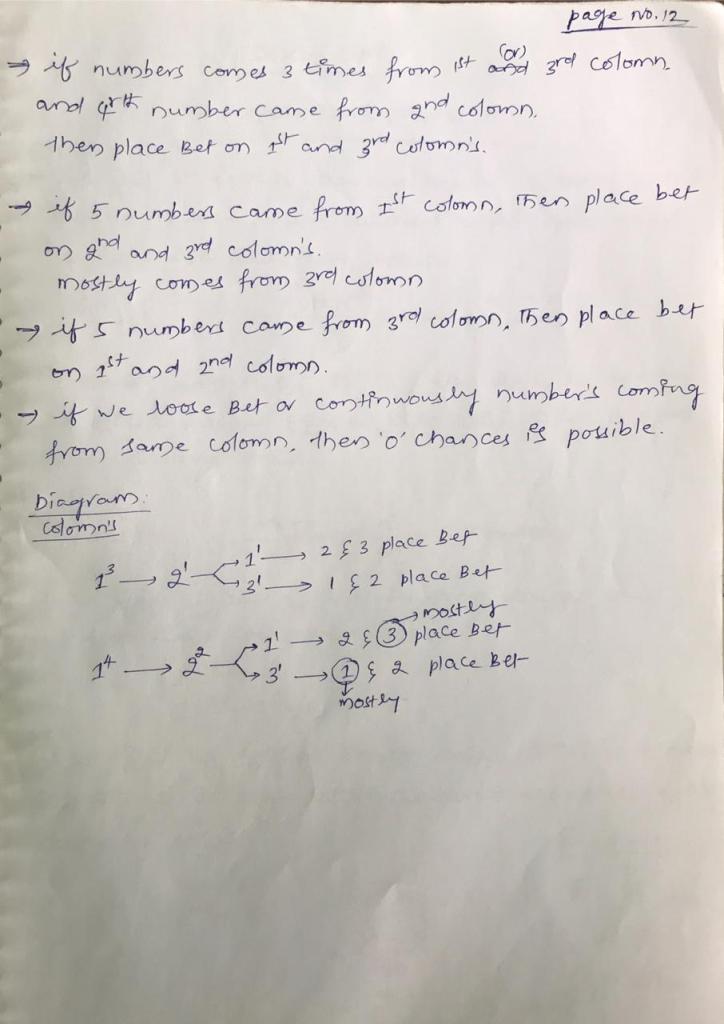 page No.12
→ if numbers comes 3 times from 1st (or) 3rd colomn
and 4rth number came from 2nd colomn.
then place Bet on 1st and 3rd colomn's.
→ if 5 numbers came from 1st colomn, then place bet
on 2nd and 3rd colomn's.
mostly comes from 3rd colomn
→ if 5 numbers came from 3rd colomn, then place bet
on 1st and 2nd colomn.
→ if we loose Bet or continuously number's coming
from same colomn, then 'o' chances is possible.
Diagram:
colomn's
1³ → 2' → 1' → 2 & 3 place Bet
→ 3' → 1 & 2 place Bet
→ mostly
1⁴ → 2² → 1' → 2 & 3 place Bet
→ 3' → 1 & 2 place Bet
mostly